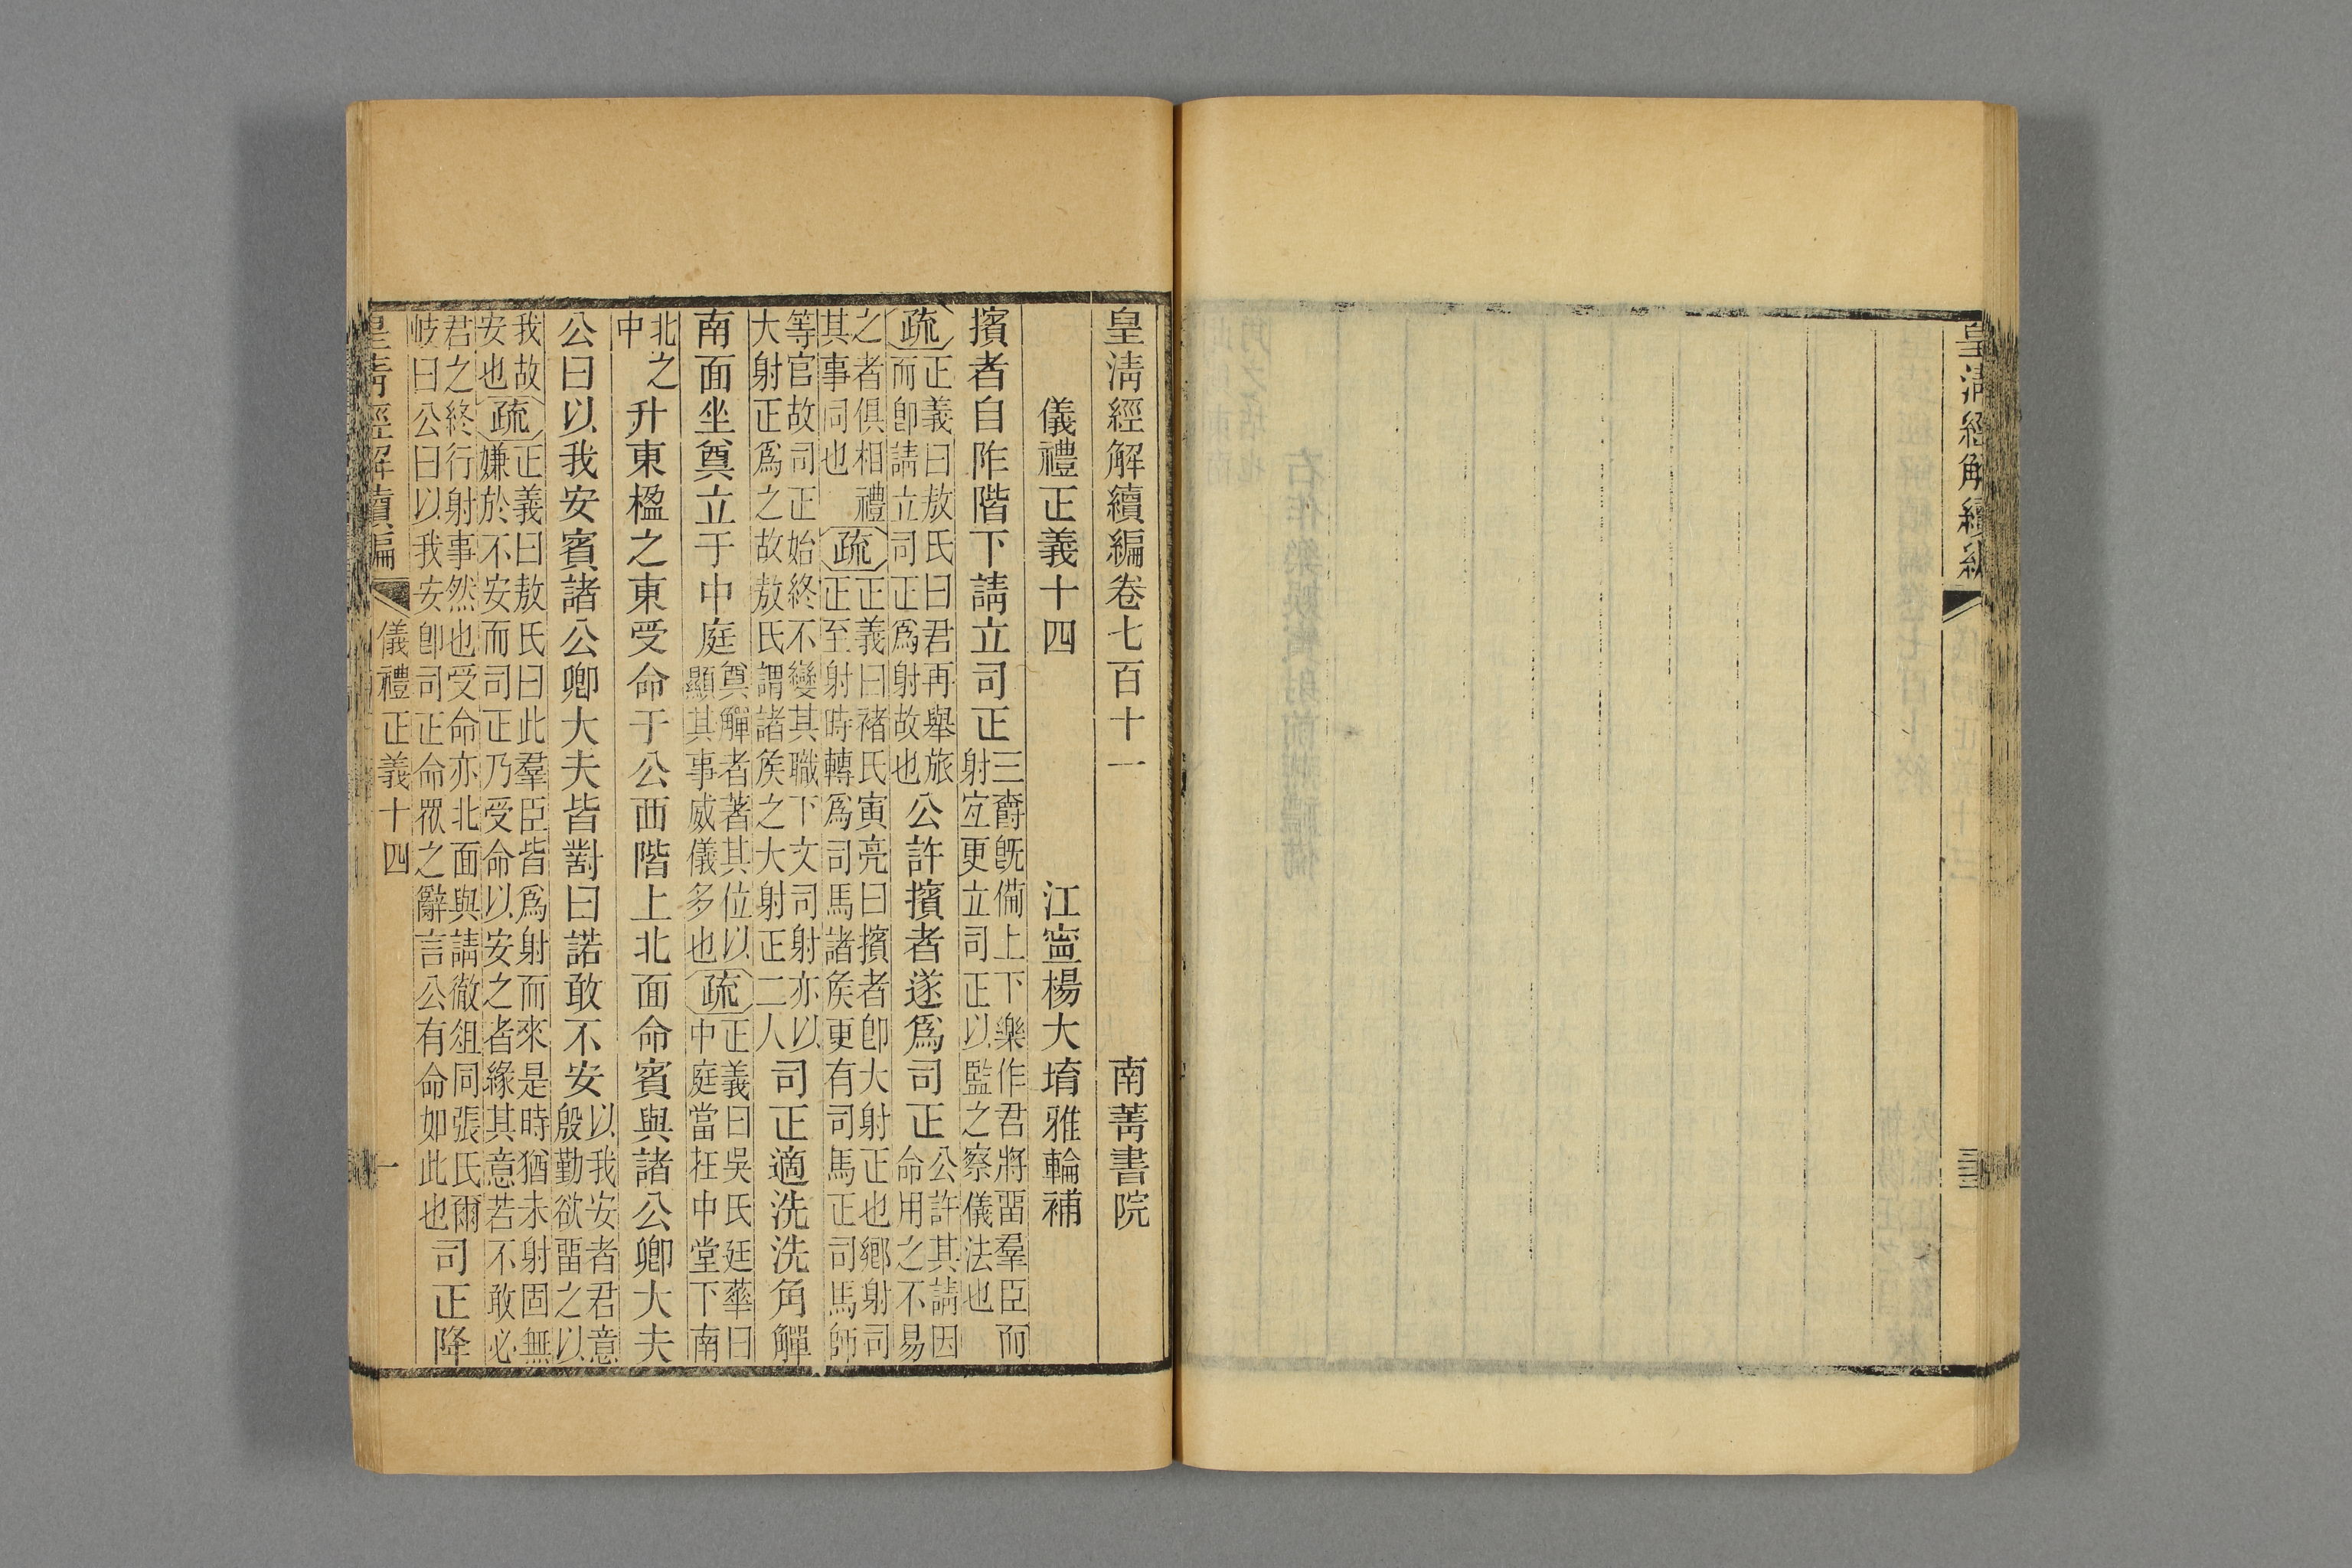 皇清經解續編 三
皇清經解續編卷七百十一 南菁書院
儀禮正義十四 江寧楊大堉雅輪補
擯者自阼階下請立司正
三爵旣備上下樂作君將畱羣臣而
射宐更立司正以監之察儀法也
疏
正義曰敖氏曰君再舉旅
而卽請立司正爲射故也
公許擯者遂爲司正
公許其請因
命用之不易
之者俱相禮
其事同也
疏
正義曰褚氏寅亮曰擯者卽大射正也鄉射司
正至射時轉爲司馬諸矦更有司馬正司馬師
等官故司正始終不變其職下文司射亦以
大射正爲之故敖氏謂諸矦之大射正二人
司正適洗洗角觶
南面坐奠立于中庭
奠觶者著其位以
顯其事威儀多也
疏
正義曰吳氏廷華曰
中庭當在中堂下南
北之
中
升東楹之東受命于公西階上北面命賓與諸公卿大夫
公曰以我安賓諸公卿大夫皆對曰諾敢不安
以我安者君意
殷勤欲畱之以
我故
安也
疏
正義曰敖氏曰此羣臣皆爲射而來是時猶未射固無
嫌於不安而司正乃受命以安之者緣其意若不敢必
君之終行射事然也受命亦北面與請徹俎同張氏爾
岐曰公曰以我安卽司正命眾之辭言公有命如此也
司正降
皇清經解續編 儀禮正義十四 一